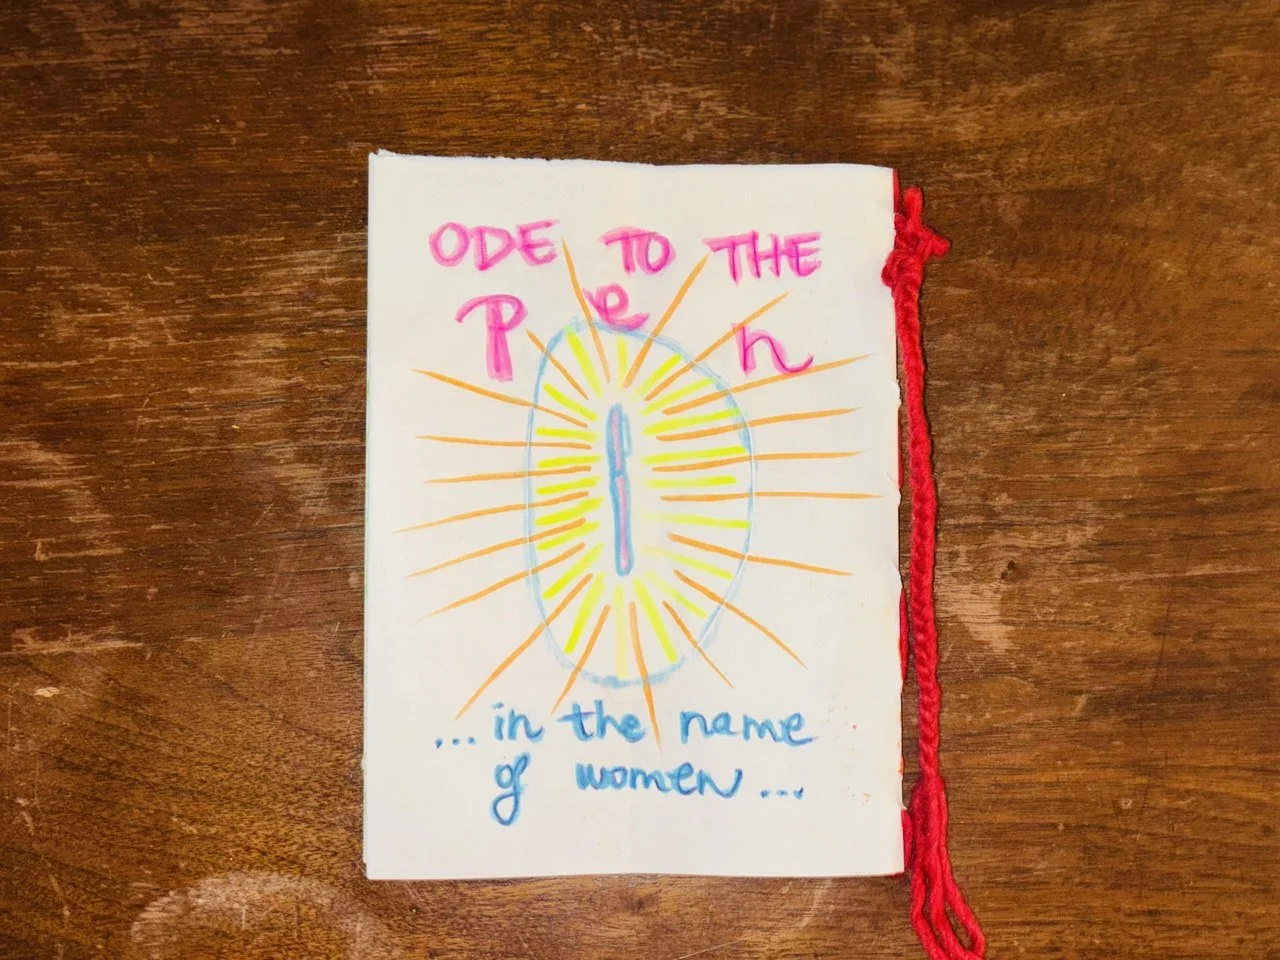 ODE TO THE
Pen
...in the name
of women...